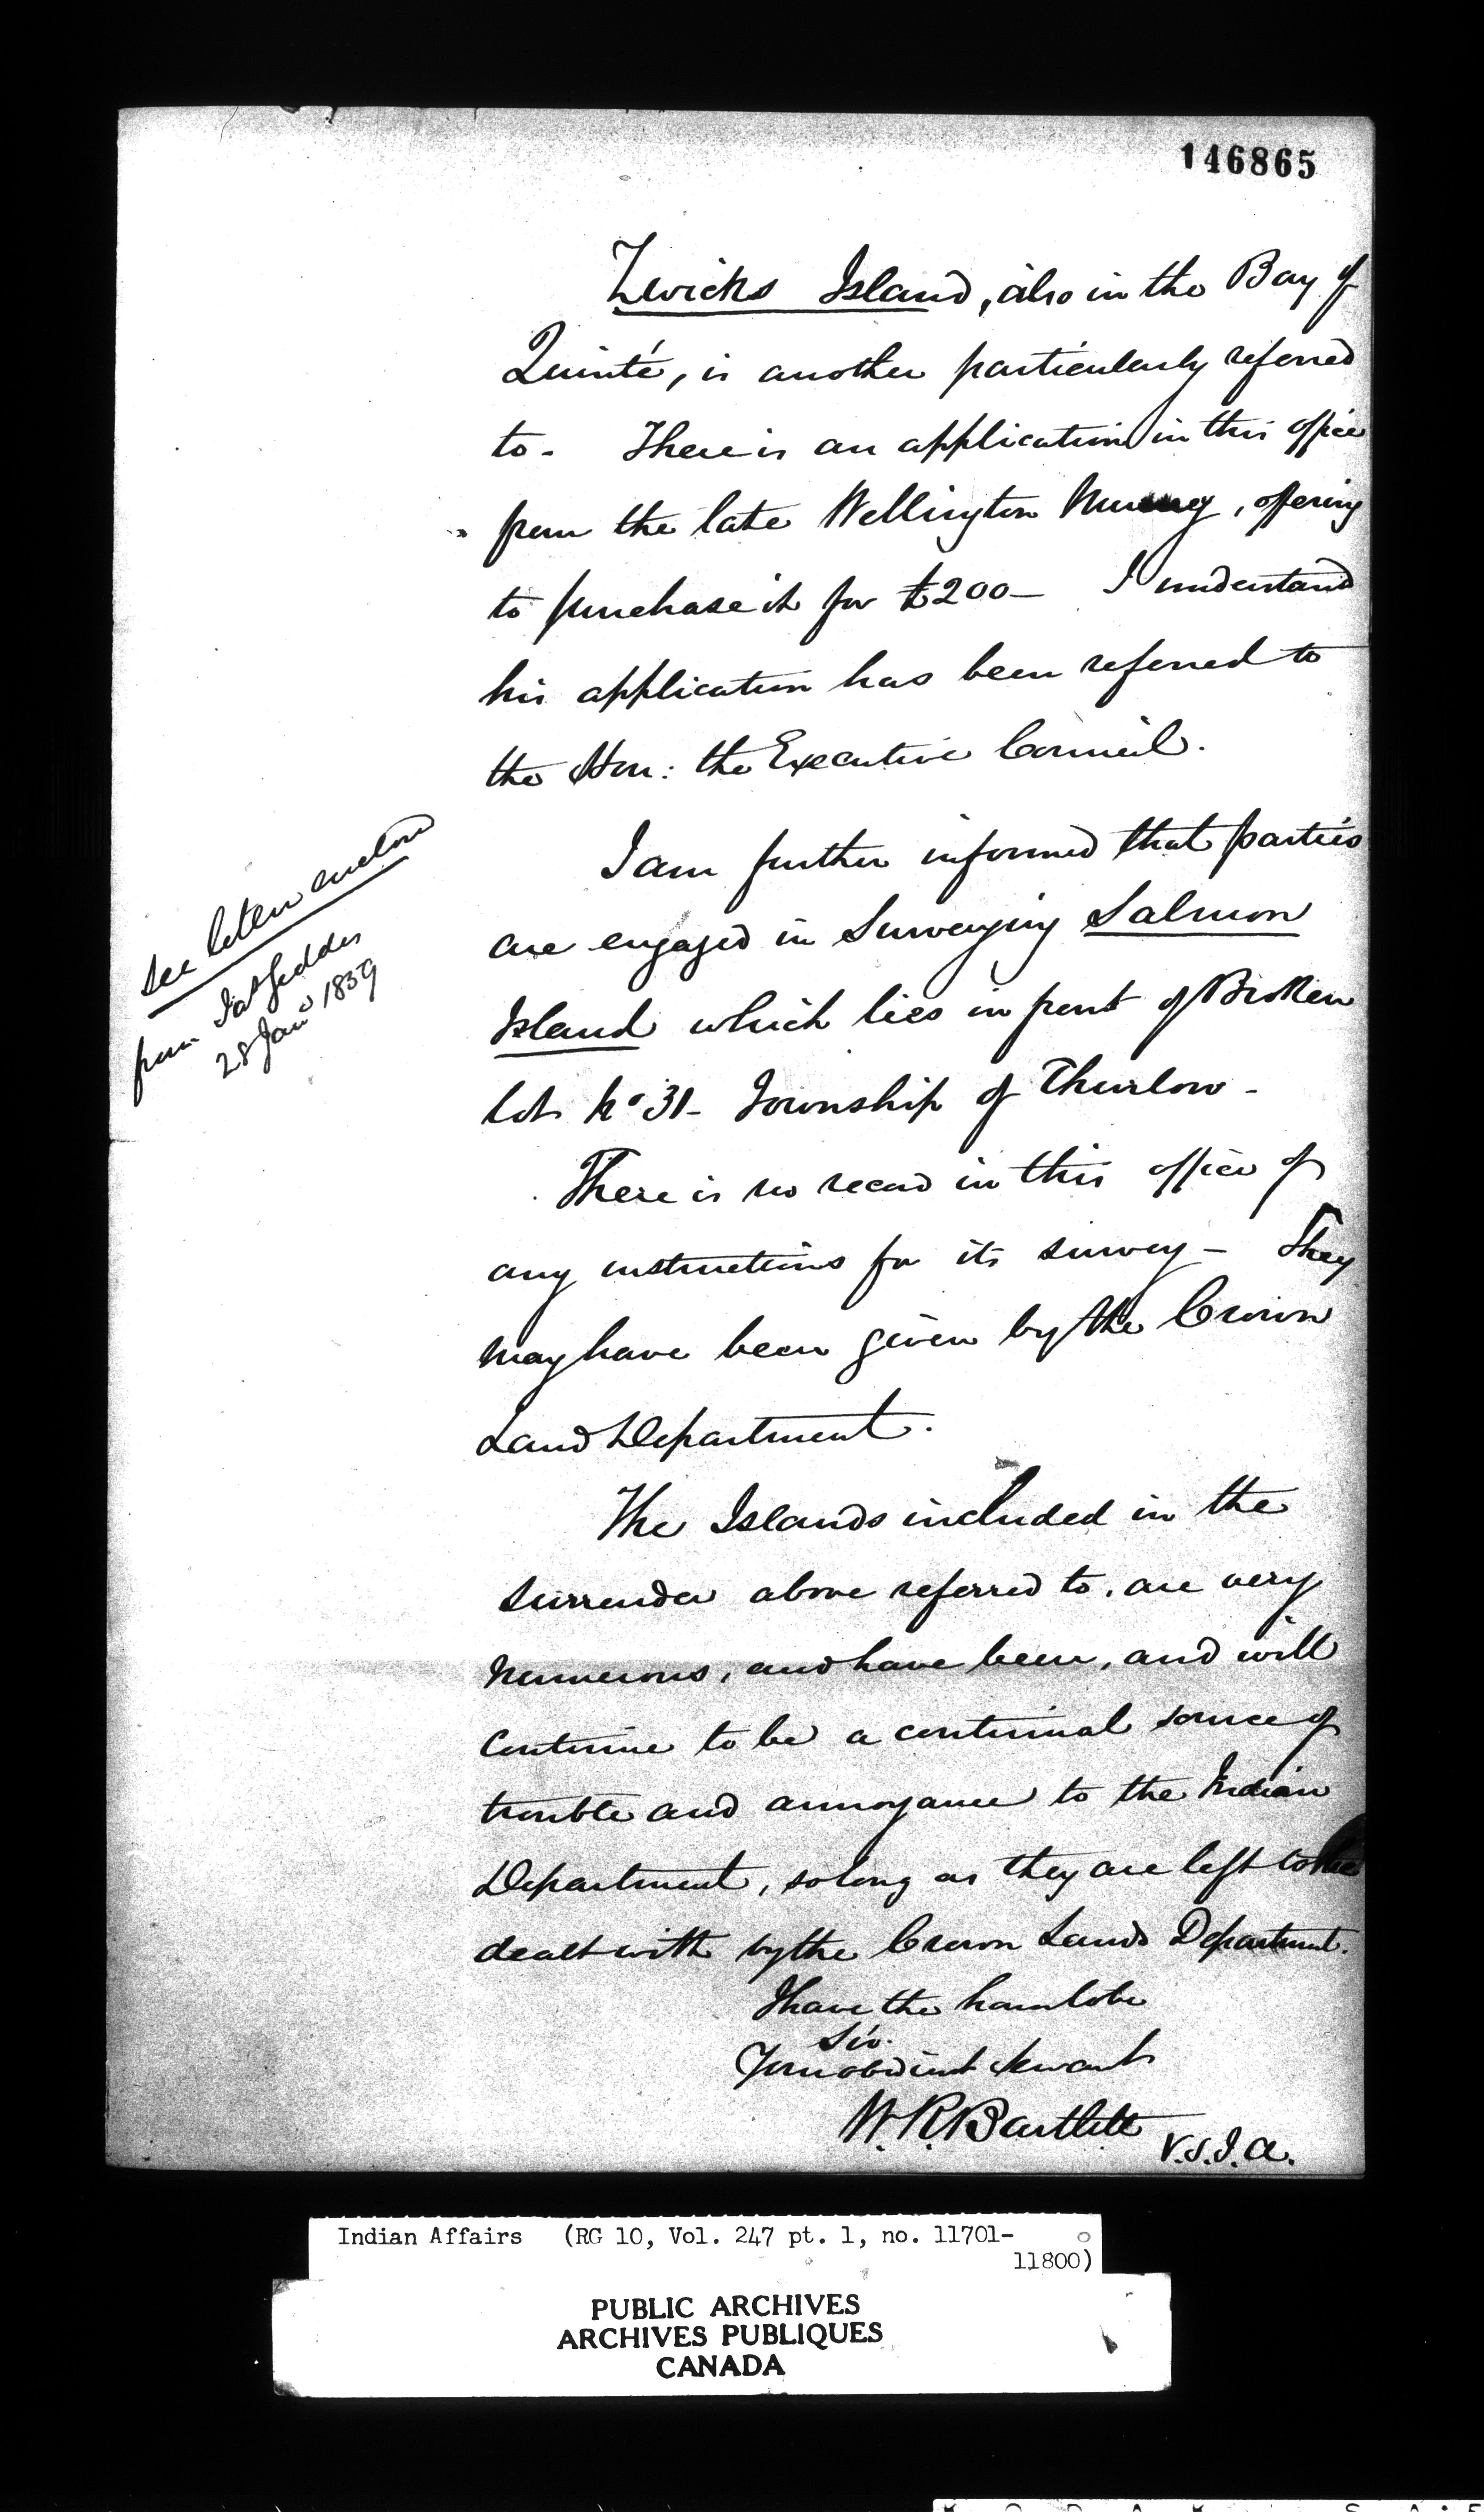 146865
Zwicks Island, also in the Bay of
Quinté, is another particularly referred
to - There is an application in this office
from the late Wellington , offering
to purchase it for £200 - I understand
his application has been referred to
the Hon: the Executive Council.
I am further informed that parties
are engaged in Surveying Salmon
Island which lies in front of Broken
Lot No 31 - Township of Thurlow -
There is no record in this office of
any instructions for its survey - They
may have been given by the Crown
Land Department.
The Islands included in the
Surrender above referred to, are very
numerous, and have been, and will
continue to be a continual source of
trouble and annoyance to the Indian
Department, so long as they are left to be
dealt with by the Crown Lands Department.
I have the honor to be
Sir.
Your obedient Servant
W. R. Bartlett
V.S.I.A.
See letter enclosed
from Jas Geddes
28 Jany 1859
Indian Affairs (RG 10, Vol. 247 pt. 1, no. 11701-
11800)
PUBLIC ARCHIVES
ARCHIVES PUBLIQUES
CANADA